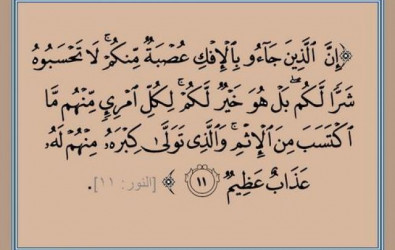 ﴿إِنَّ الَّذِينَ جَاءُو بِالْإِفْكِ عُصْبَةٌ مِّنكُمْ ۚ لَا تَحْسَبُوهُ
شَرًّا لَّكُم ۖ بَلْ هُوَ خَيْرٌ لَّكُمْ ۚ لِكُلِّ امْرِئٍ مِّنْهُم مَّا
اكْتَسَبَ مِنَ الْإِثْمِ ۚ وَالَّذِي تَوَلَّىٰ كِبْرَهُ مِنْهُمْ لَهُ
عَذَابٌ عَظِيمٌ ١١ ﴾ [النور: ١١].